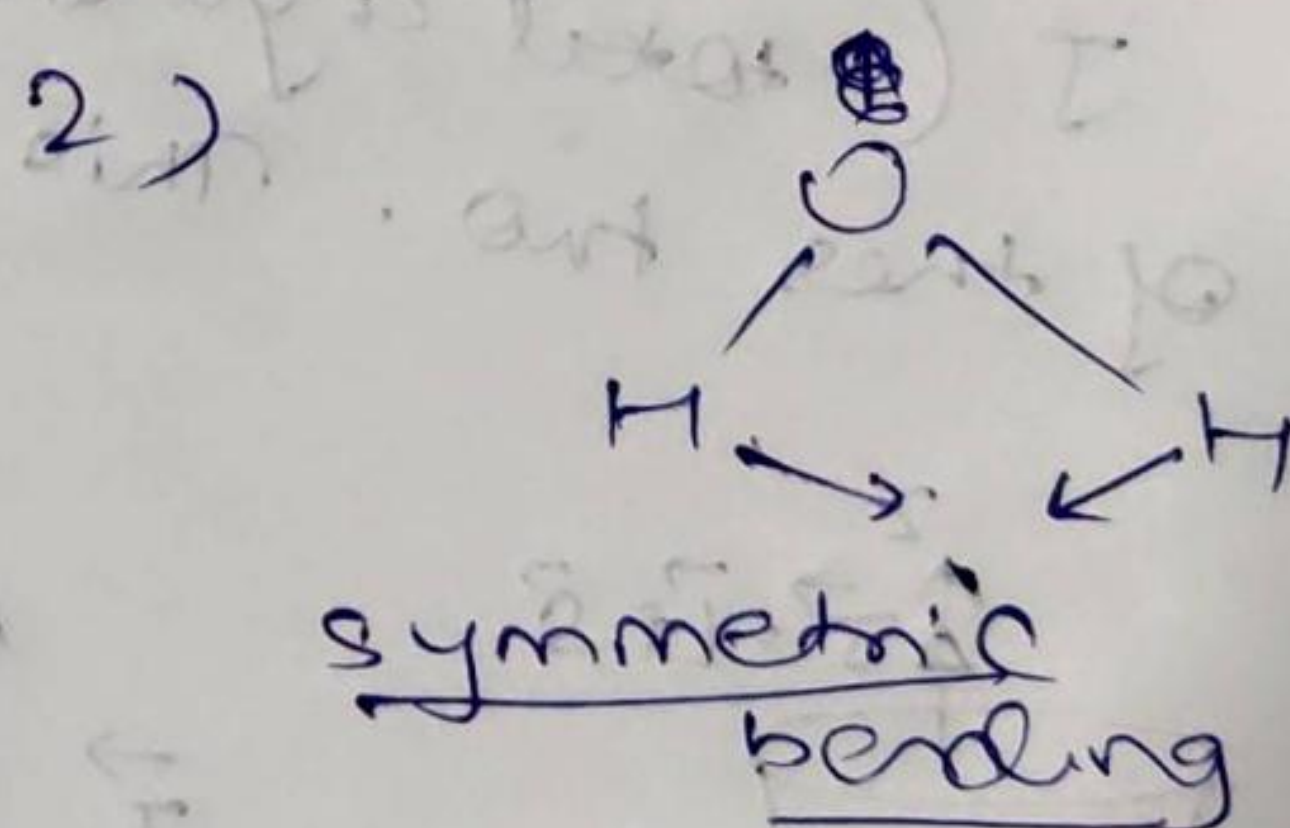 2)
O
H H
symmetric
bending